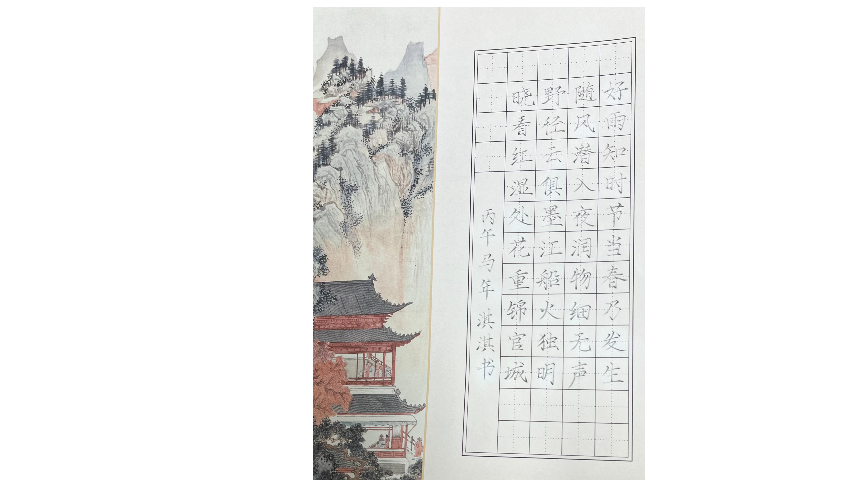 好雨知时节当春乃发生
随风潜入夜润物细无声
野径云俱墨江船火独明
晓看红湿处花重锦官城
丙午马年 淇淇书